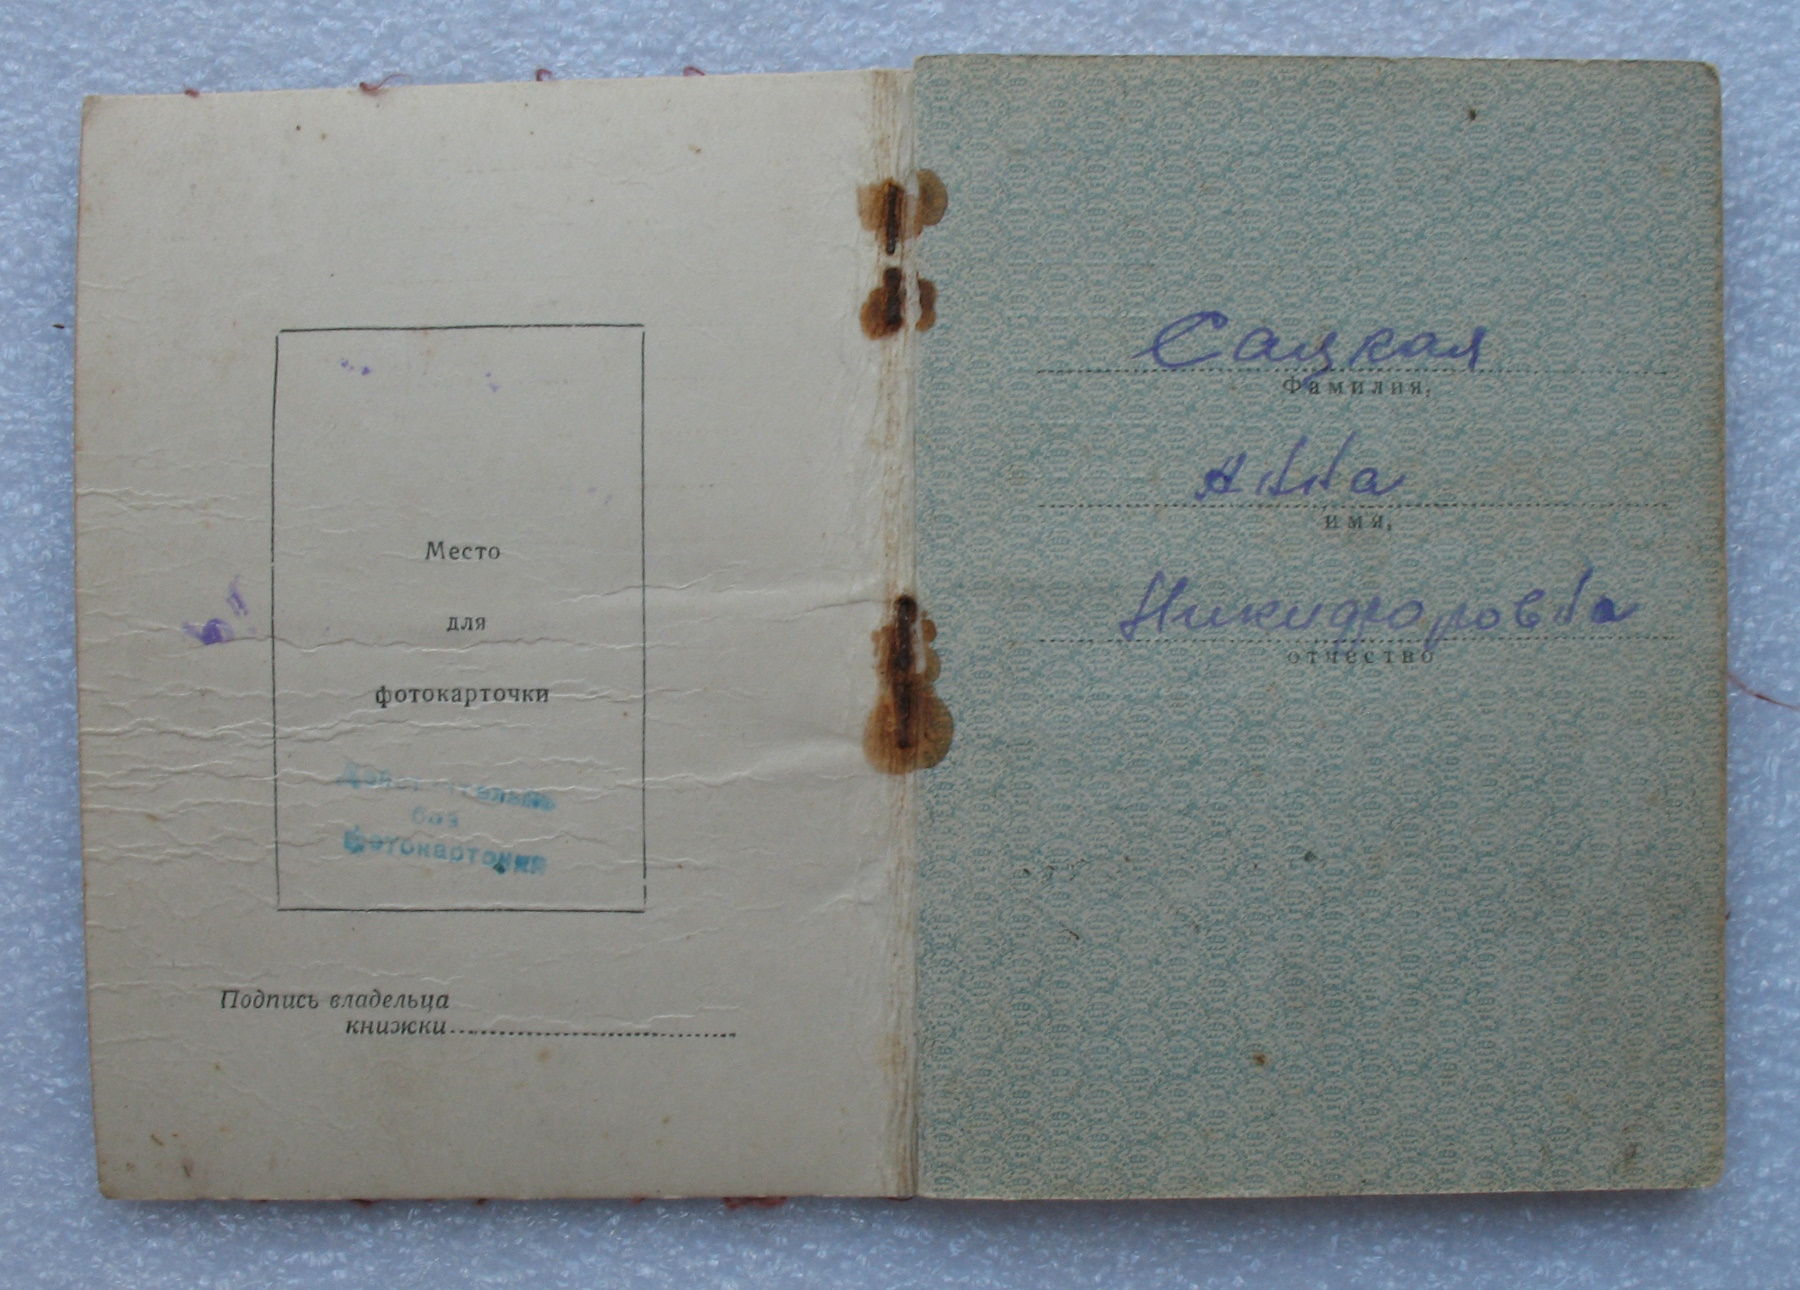 Место
для
фотокарточки
без
Фотокарточки
Подпись владельца
книжки
Сацкая
Фамилия,
Анна
имя,
Никифоровна
отчество